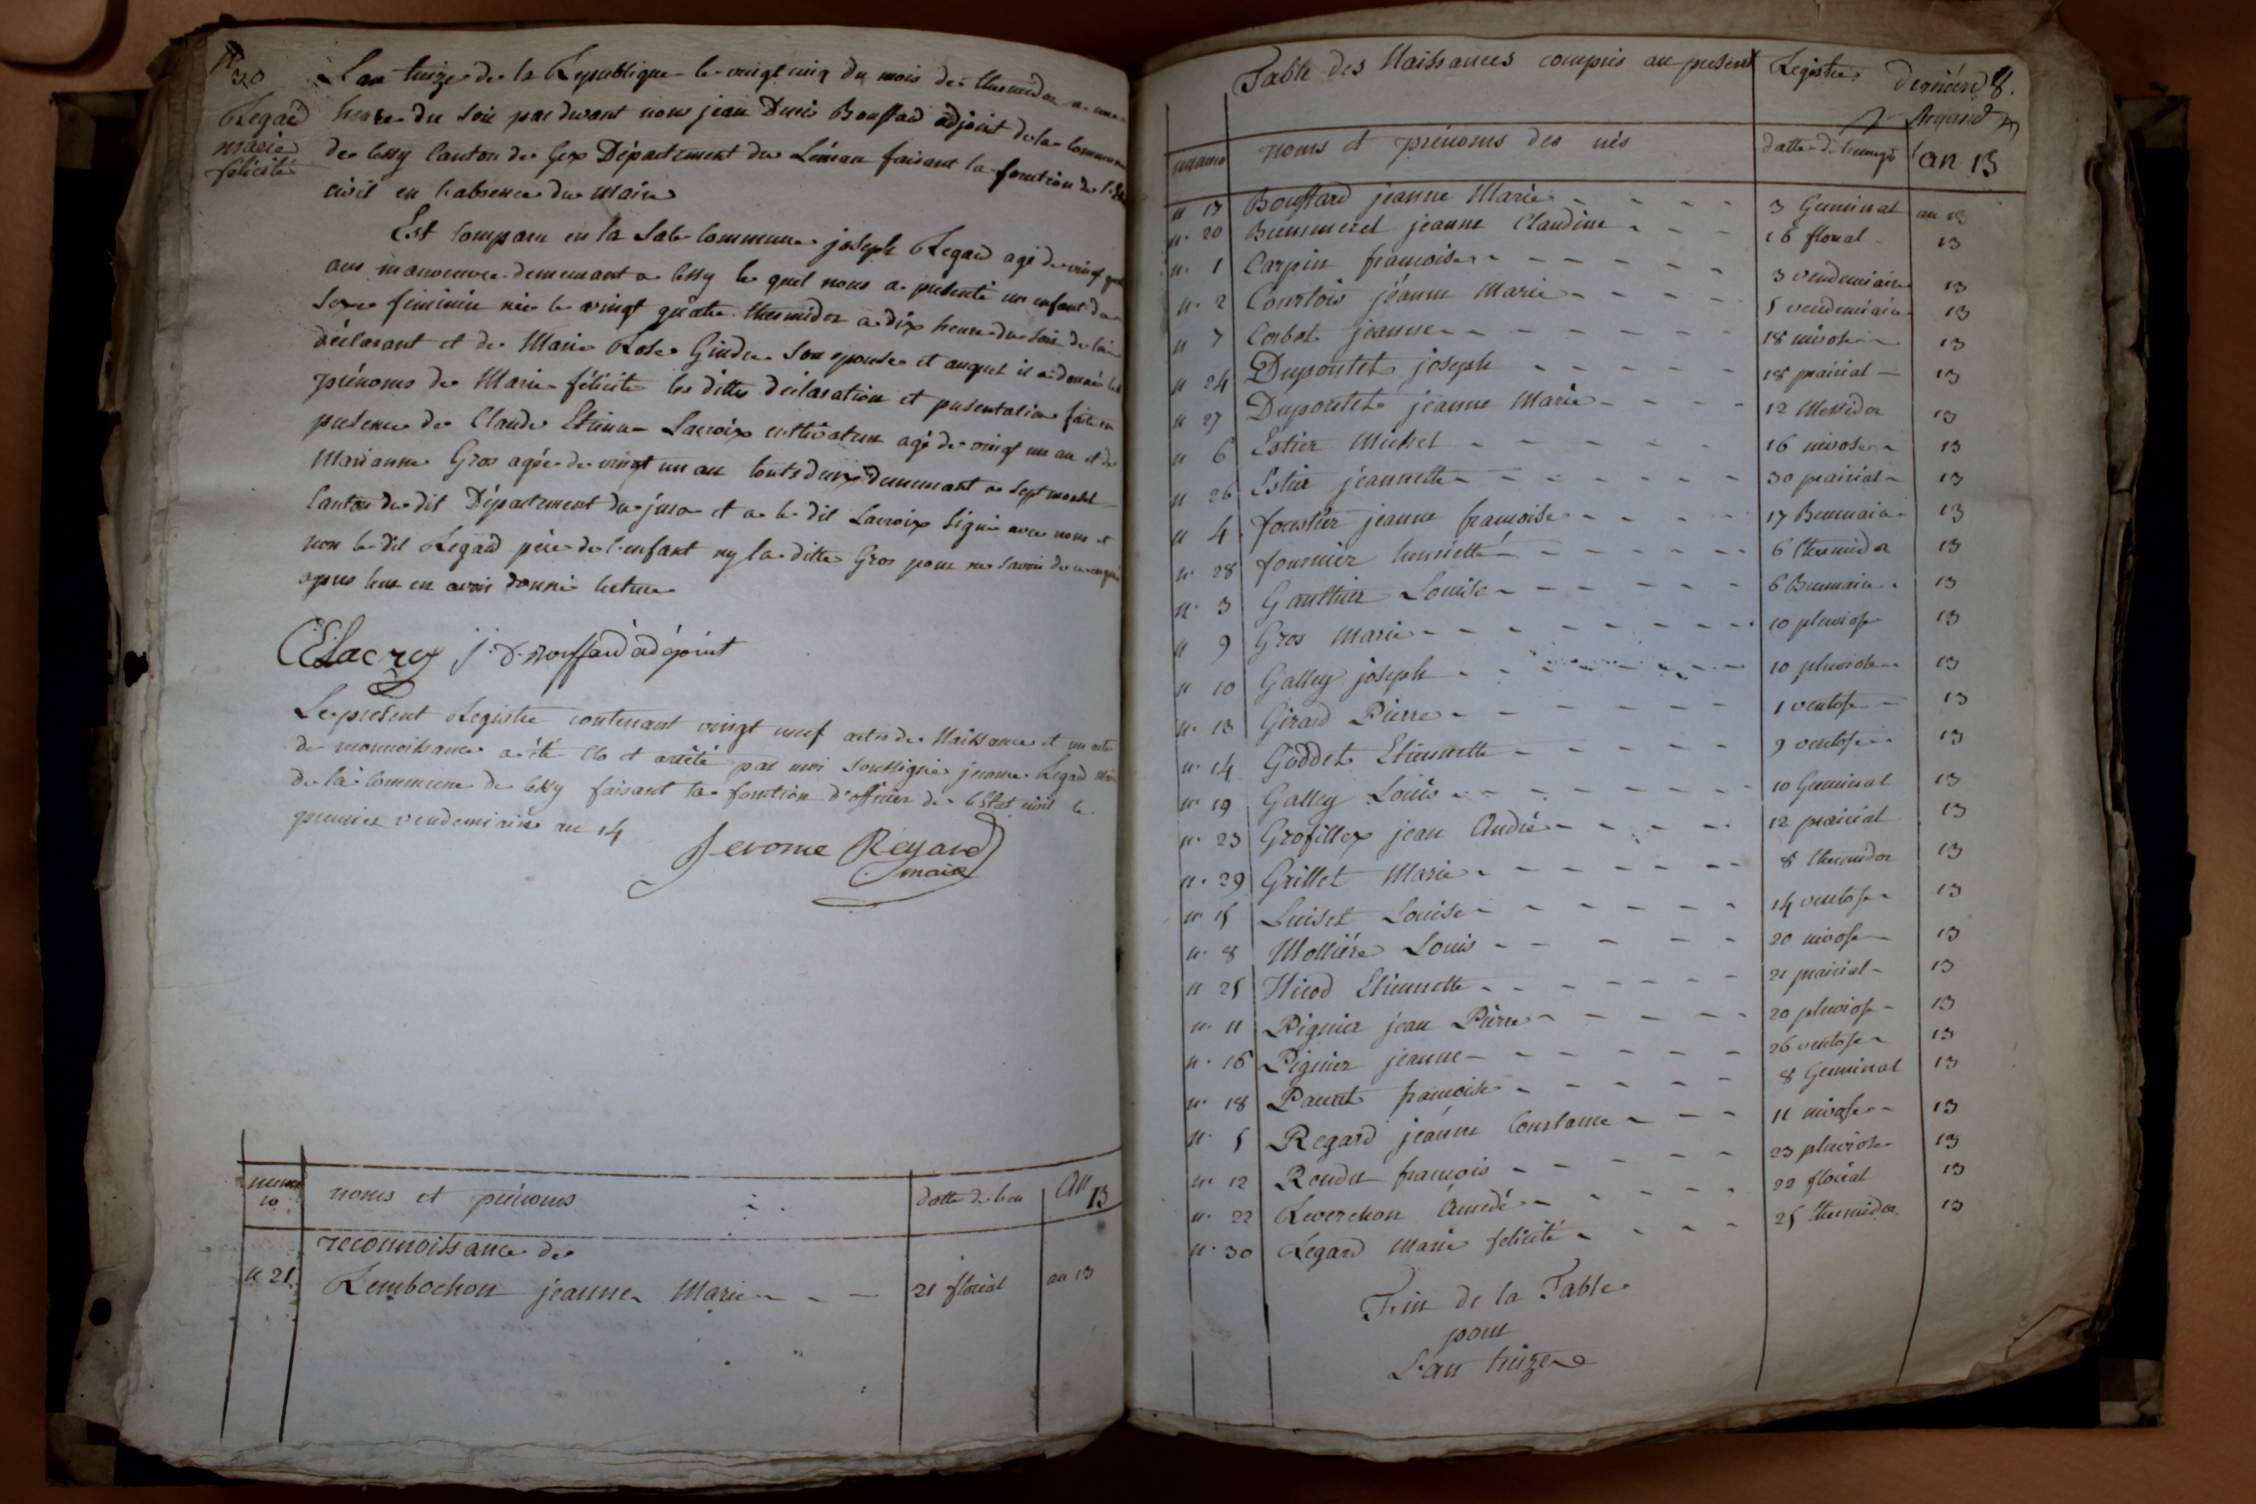 N°
30
Regard
Marie
félicité
L'an treize de la République le vingt cinq du mois de thermidor a une
heure du soir par devant nous jean Denis Bouffard adjoint de la commune
de Cessy Canton de Gex Département du Léman faisant la fonction de
civil en l'absence du Maire
Est Comparu en la Sale Commune joseph Regard agé de vingt
ans manoeuvre demeurant a Cessy le quel nous a présenté un enfant du
Sexe féminin née le vingt quatre thermidor a dix heure du soir de lui
déclarant et de Marie Rose Gindre Son epouse et auquel il a donné les
prénoms de Marie félicité les dittes déclaration et présentation faite en
présence de Claude Etienne Lacroix cultivateur agé de vingt un an et de
Marianne Gros agée de vingt un an touts deux demeurant a Septmoncel
Canton du dit Département du jura et a le dit Lacroix Signé avec nous et
non le dit Regard père de l'enfant ny la ditte Gros pour ne savoir de ce enquis
apres leur en avoir donné lecture
CELacroy j. D. Bouffard adejoint
Le présent Registre contenant vingt neuf actes de Naissance et un acte
de reconnoissance a été clo et arrété par moi Soussigné jerome Regard
de la Commune de Cessy faisant la fonction d'officier de l'Etat civil le
premier vendemiaire an 14
Jerome Regard
maire
numero noms et prénoms datte de leur an 13
reconnoissance de
n 21 Rembochon jeanne Marie 21 floréal an 13
Table des Naissances compris au présent Registre dernière 8.
Argand
numero noms et prénoms des nés datte de l'an 13
n 17 Bouffard jeanne Marie 3 Germinal an 13
n. 20 jeanne Claudine 16 floréal 13
n. 1 Carpin francoise 3 vendemiaire 13
n. 2 Courtois jéanne Marie 5 vendemiaire 13
n 7 Corbot jeanne 18 nivose 13
n 24 Dupontet joseph 18 prairial 13
n 27 Dupontet jeanne Marie 12 Messidor 13
n 6 Estier Michel 16 nivose 13
n 26 Estier jeannette 30 prairial 13
n 4 foustier jeanne francoise 17 Brumaire 13
n. 28 fournier henriette 6 thermidor 13
n. 3 Gauthier Louise 6 Brumaire 13
n 9 Gros Marie 10 pluviose 13
n 10 Galley joseph 10 pluviose 13
n. 13 Girard Pierre 1 ventose 13
n. 14 Goddet Etiennette 9 ventose 13
n. 19 Galley Louis 10 Germinal 13
n. 23 Grofillex jean André 12 prairial 13
n. 29 Grillet Marie 8 thermidor 13
n. 15 Luiset Louise 14 ventose 13
n. 8 Mollière Louis 20 nivose 13
n 25 Nicod Etiennette 21 prairial 13
n. 11 Pignier jean Pierre 20 pluviose 13
n. 16 Pignier jeanne 26 ventose 13
n. 18 francoise 8 Germinal 13
n. 5 Regard jéanne Constance 11 nivose 13
n. 12 Rondet francois 23 pluviose 13
n. 22 Reverchon Amedé 22 floréal 13
n. 30 Regard Marie félicité 25 thermidor 13
Fin de la Table
pour
L'an treize